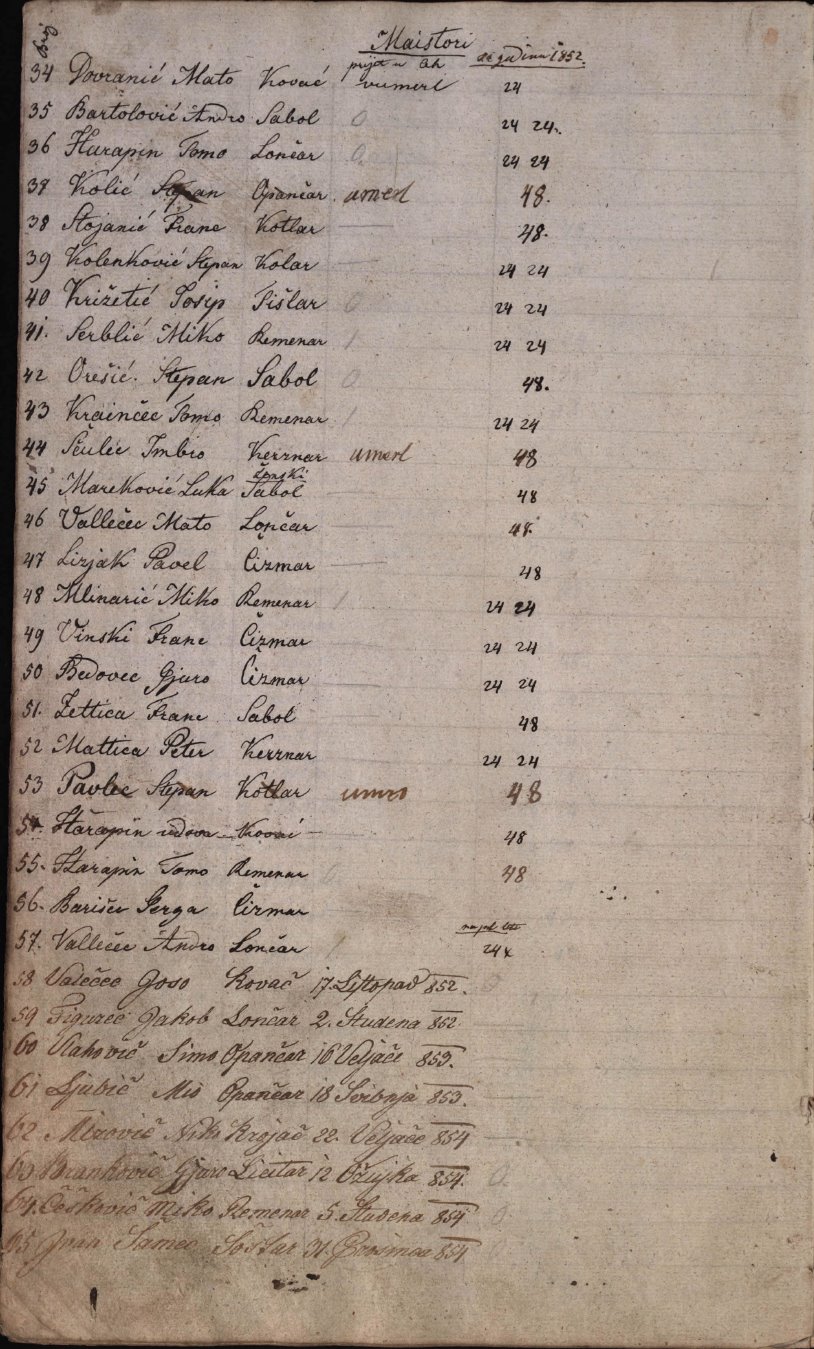 Broj Maistori
prijet u Ceh za godinu 1852.
34 Dovranić Mato Kovač vumerl 24
35 Bartolović Andro Sabol 0 24 24.
36 Harapin Tomo Lončar 0. 24 24
37 Kolić Stepan Opančar. umerl 48.
38 Stojanić Franc Kotlar — 48.
39 Kolenković Stepan Kolar — 24 24
40 Križetić Josip Tišlar 0 24 24
41. Serblić Miko Remenar 1 24 24
42 Orešić. Stepan Sabol 0 48.
43 Krainčec Tomo Remenar 1 24 24
44 Sčulec Imbro Kerznar umerl 48
ženski
45 Mareković Luka Sabol — 48
46 Vallečec Mato Lončar — 48.
47 Lizjak Pavel Čizmar — 48
48 Mlinarić Miko Remenar 1 24 24
49 Vinski Franc Čizmar — 24 24
50 Bedovec Gjuro Čizmar — 24 24
51. Zettica Franc Sabol — 48
52 Mattica Peter Kerznar 24 24
53 Pavlec Stepan Kotlar umro 48
54. Harapin udova Kovač — 48
55. Harapin Tomo Remenar 0 48
56. Barišec Gerga Čizmar —
na pol leta
57. Vallečec Andro Lončar 1 24 x
58 Valečec Joso Kovač 17. Listopad 852. 0
59 Figurec Jakob Lončar 2. Studena 852
60 Vlahovič Simo Opančar 16 Veljače 853.
61 Ljubič Mio Opančar 18 Svibnja 853.
62 Mirovič Niko Krojač 22. Veljače 854
63 Brankovič Gjuro Licitar 12 Ožujka 854. 0.
64. Češkovič Miko Remenar 5. Studena 854 0
65 Ivan Samec Šoštar 31. Prosinca 854 0